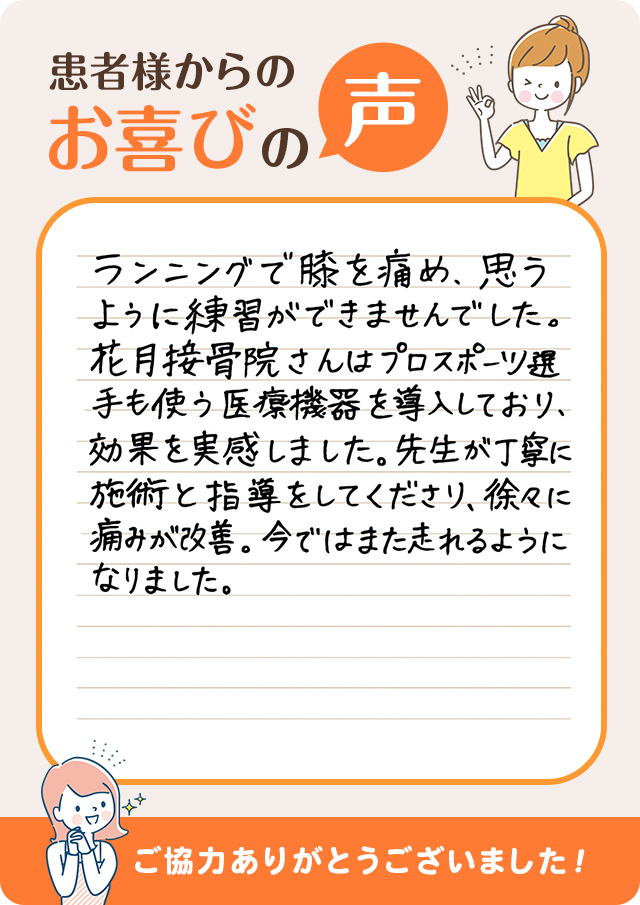 患者様からの
お喜びの声
ランニングで膝を痛め、思う
ように練習ができませんでした。
花月接骨院さんはプロスポーツ選
手も使う医療機器を導入しており、
効果を実感しました。先生が丁寧に
施術と指導をしてくださり、徐々に
痛みが改善。今ではまた走れるように
なりました。
ご協力ありがとうございました!